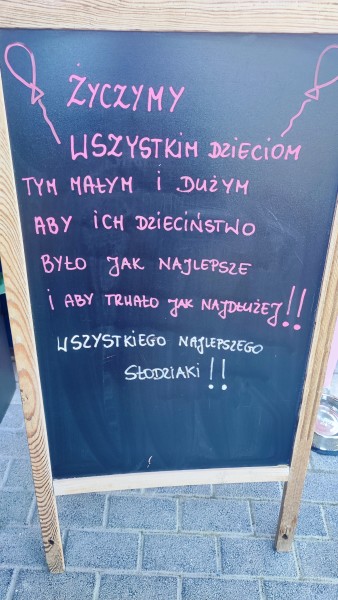 ŻYCZYMY
WSZYSTKIM DZIECIOM
TYM MAŁYM I DUŻYM
ABY ICH DZIECIŃSTWO
BYŁO JAK NAJLEPSZE
I ABY TRWAŁO JAK NAJDŁUŻEJ!!
WSZYSTKIEGO NAJLEPSZEGO
SŁODZIAKI!!